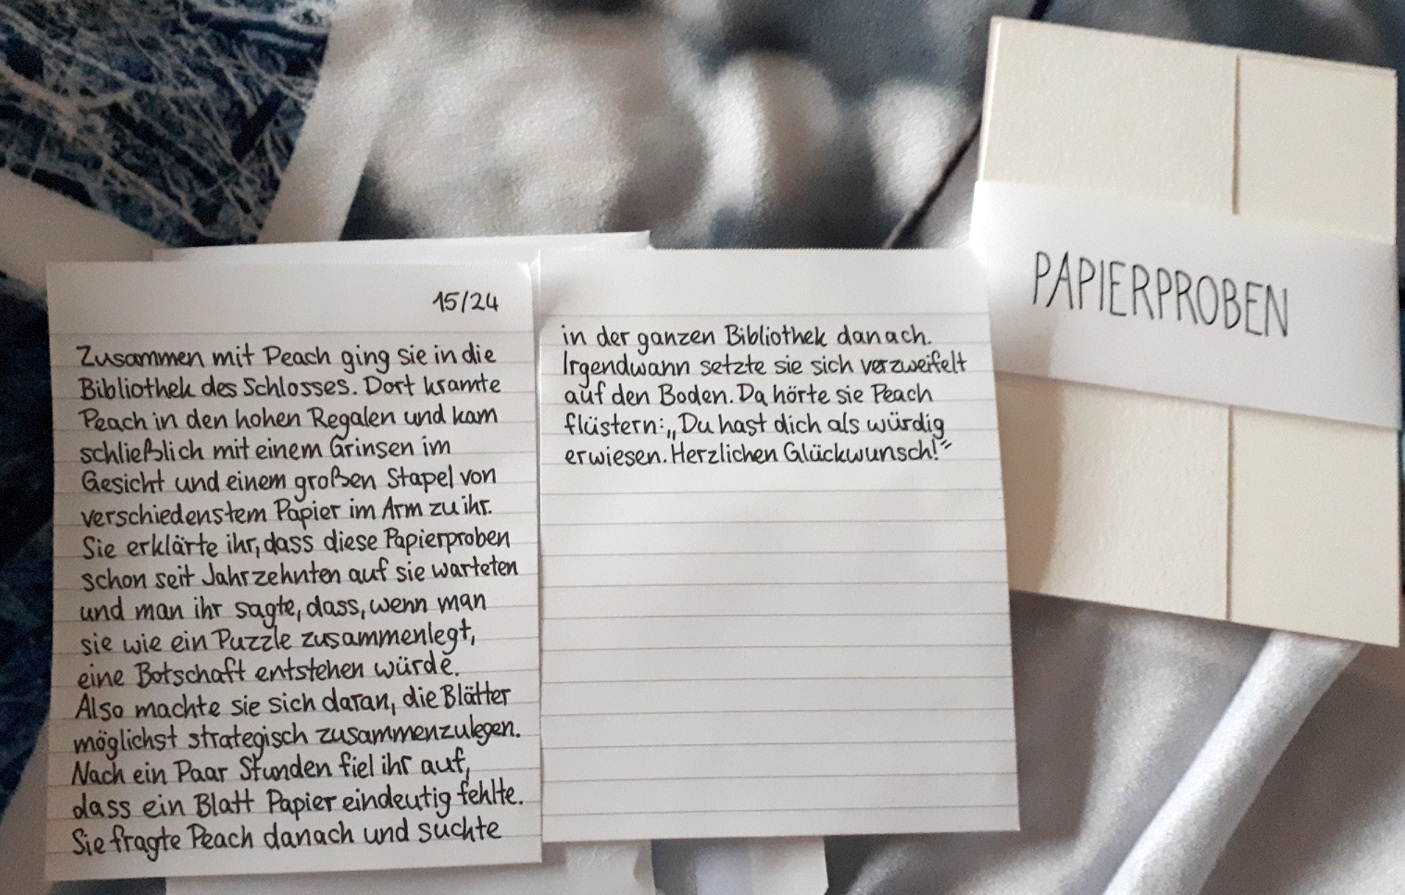 15/24
Zusammen mit Peach ging sie in die
Bibliothek des Schlosses. Dort kramte
Peach in den hohen Regalen und kam
schließlich mit einem Grinsen im
Gesicht und einem großen Stapel von
verschiedenstem Papier im Arm zu ihr.
Sie erklärte ihr, dass diese Papierproben
schon seit Jahrzehnten auf sie warteten
und man ihr sagte, dass, wenn man
sie wie ein Puzzle zusammenlegt,
eine Botschaft entstehen würde.
Also machte sie sich daran, die Blätter
möglichst strategisch zusammenzulegen.
Nach ein Paar Stunden fiel ihr auf,
dass ein Blatt Papier eindeutig fehlte.
Sie fragte Peach danach und suchte
in der ganzen Bibliothek danach.
Irgendwann setzte sie sich verzweifelt
auf den Boden. Da hörte sie Peach
flüstern: „Du hast dich als würdig
erwiesen. Herzlichen Glückwunsch!“
PAPIERPROBEN